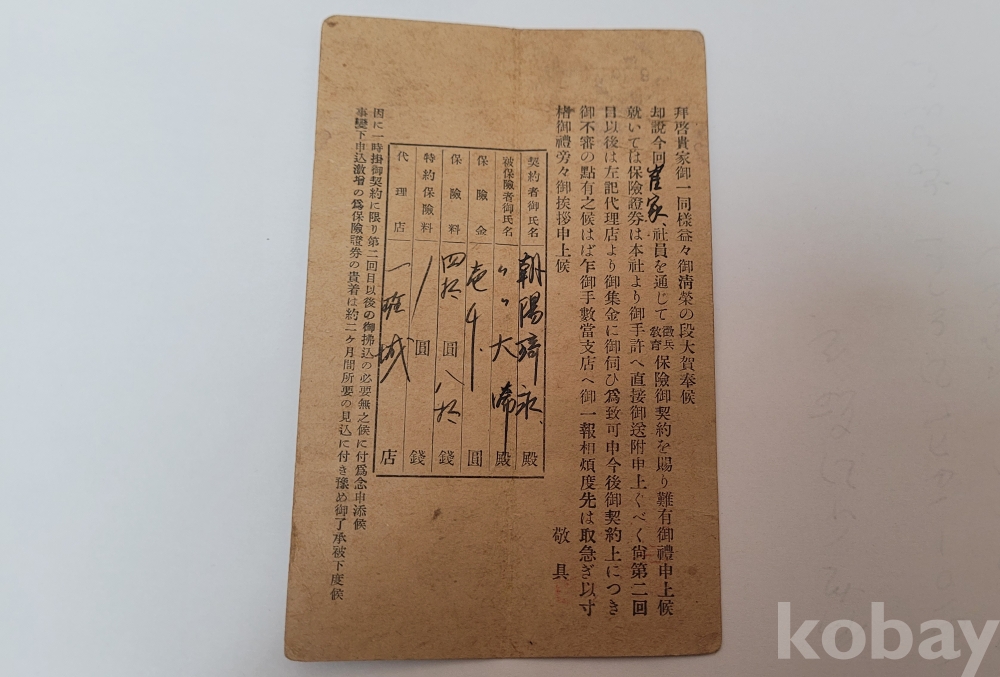 拜啓貴家御一同樣益々御淸榮の段大賀奉候
却說今回崔家、社員を通じて徵兵敎育保險御契約を賜り難有御禮申上候
就いては保險證券は本社より御手許へ直接御送附申上ぐべく尙第二回
目以後は左記代理店より御集金に御伺ひ爲致可申今後御契約上につき
御不審の點有之候はば乍御手數當支店へ御一報相煩度先は取急ぎ以寸
楮御禮旁々御挨拶申上候
敬具
契約者御氏名 朝陽 永、殿
被保險者御氏名 〃〃大 殿
保險金 壱千. 圓
保險料 四拾圓八拾錢
特約保險料 / 圓 錢
代理店 一 城 店
因に一時掛御契約に限り第二回目以後の御拂込の必要無之候に付爲念申添候
事變下申込激增の爲保險證券の貴着は約二ケ月間所要の見込に付き豫め御了承被下度候
kobay